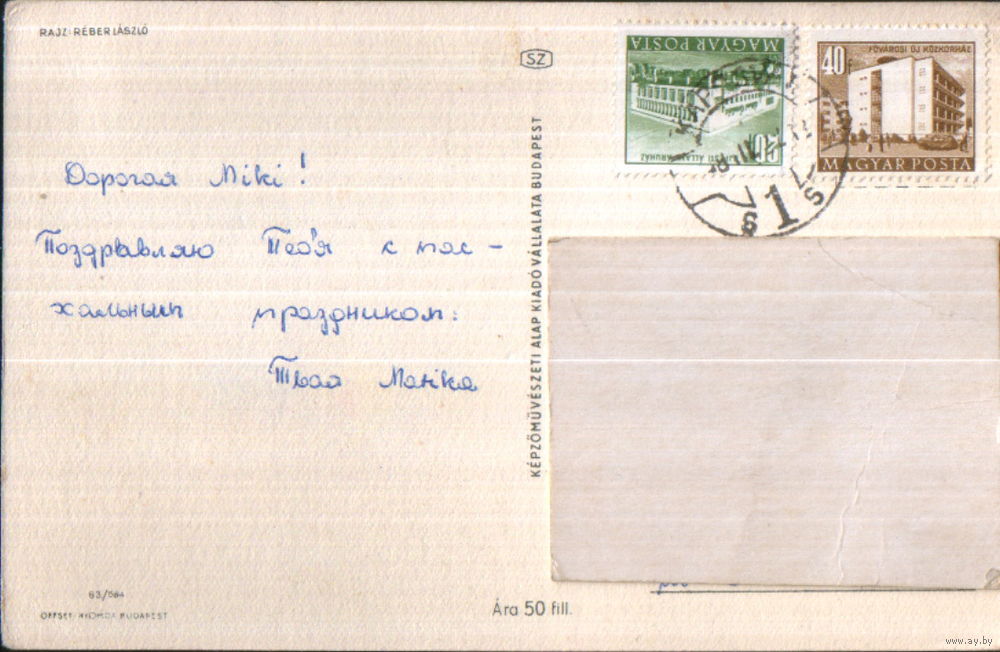 RAJZ: RÉBER LÁSZLÓ
SZ
MAGYAR POSTA
40f
FŐVÁROSI ÚJ KÓZKÓRHÁZ
MAGYAR POSTA
1
Дорогая Miki!
Поздравляю Тебя к пас-
хальным праздником:
Твоя Marika
KÉPZŐMŰVÉSZETI ALAP KIADÓVÁLLALATA BUDAPEST
63/564
OFFSET-NYOMDA BUDAPEST
Ára 50 fill.
www.ay.by